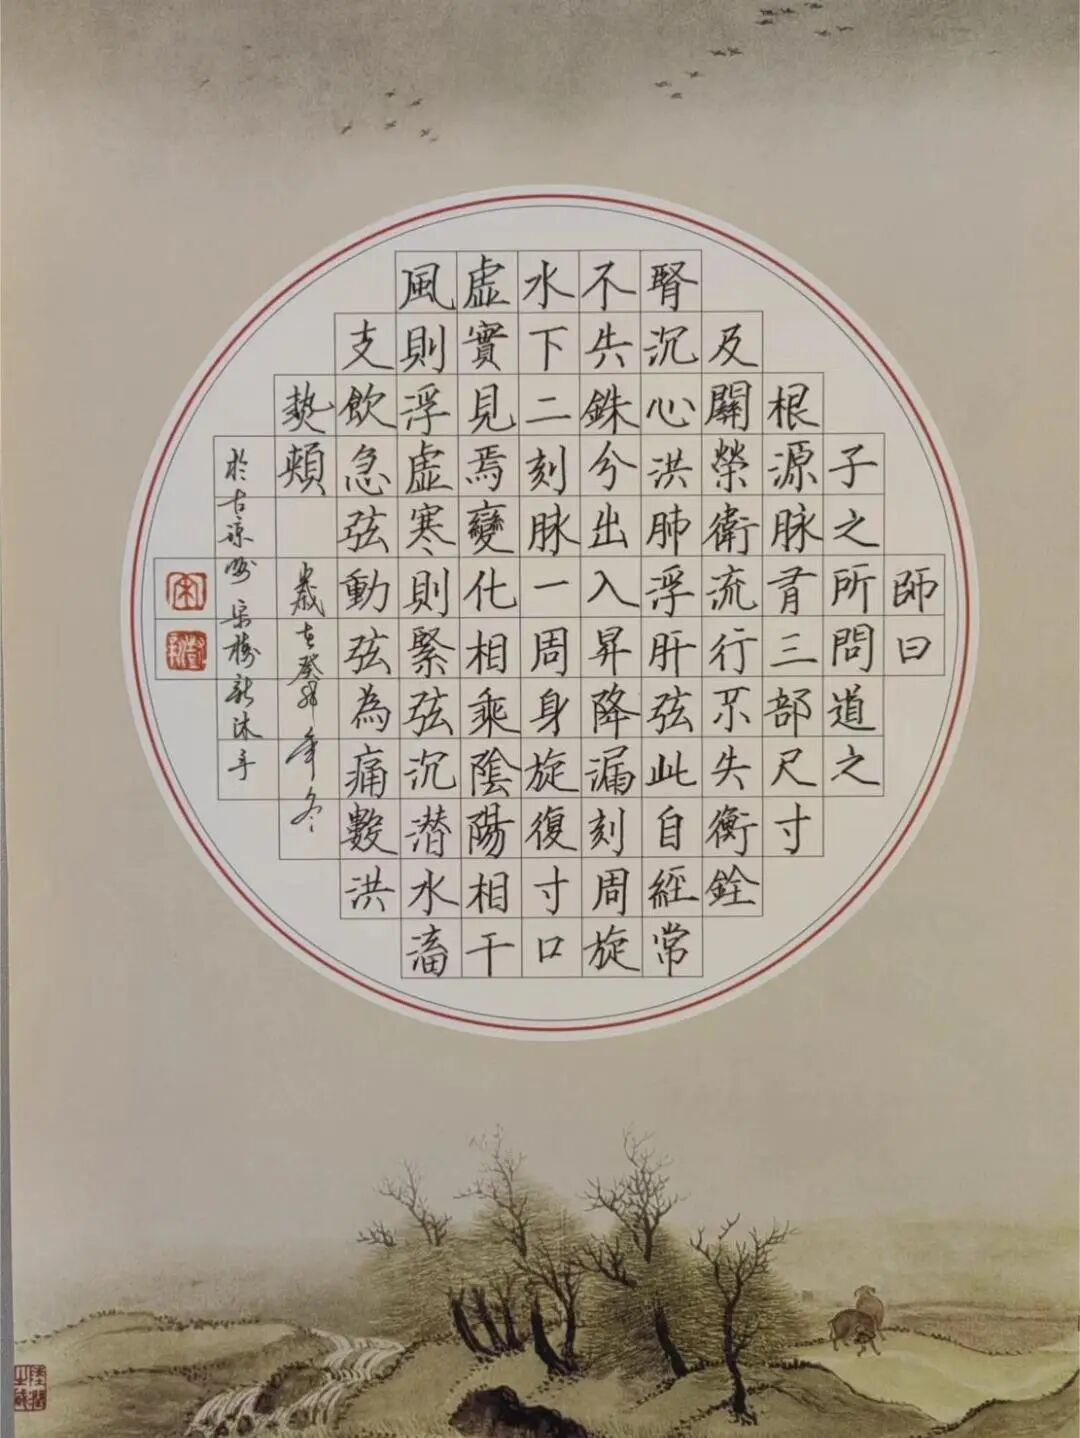 師曰
子之所問道之
根源脉有三部尺寸
及關榮衛流行不失衡銓
腎沉心洪肺浮肝弦此自經常
不失銖分出入昇降漏刻周旋
水下二刻脉一周身旋復寸口
虛實見焉變化相乘陰陽相干
風則浮虛寒則緊弦沉潜水滀
支飲急弦動弦為痛數洪
熱頰
歲在癸卯年冬
於古涼州宋新沐手
宋